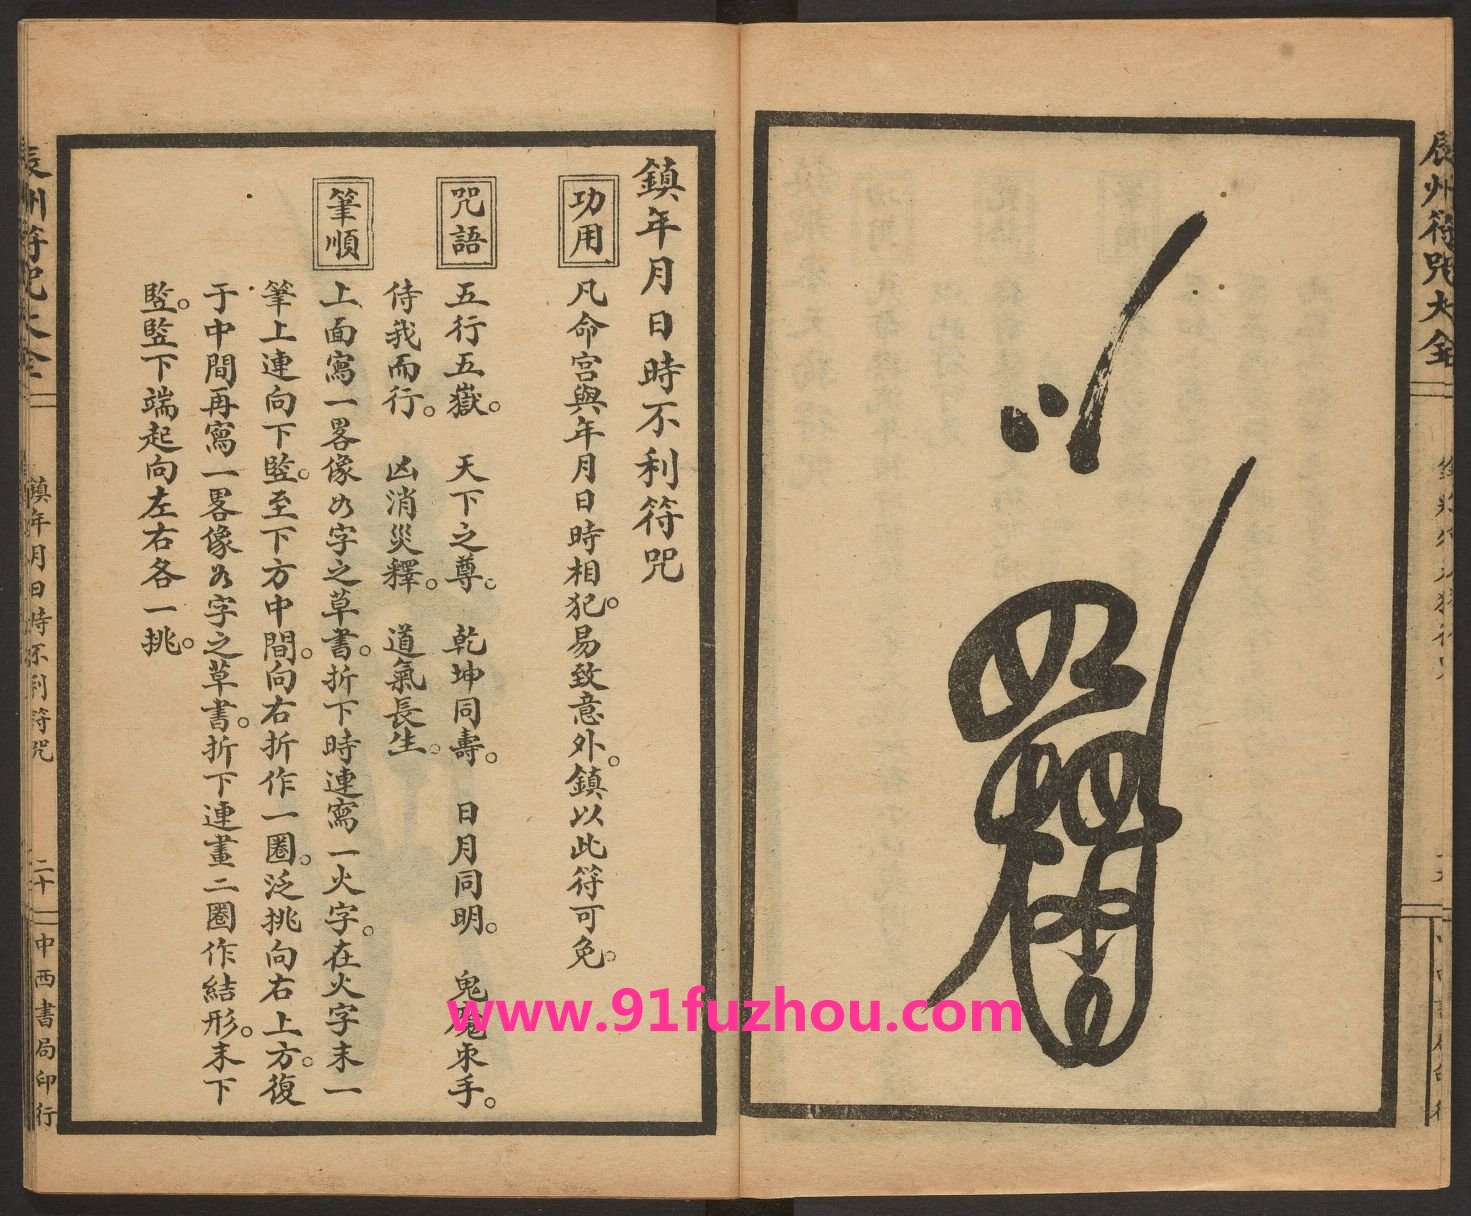 辰州符咒大全
鎮年月日時不利符咒
功用
凡命宮與年月日時相犯。易致意外。鎮以此符可免。
咒語
五行五嶽。天下之尊。乾坤同壽。日月同明。鬼魔束手。
侍我而行。凶消災釋。道氣長生。
筆順
上面寫一畧像以字之草書。折下時連寫一火字。在火字末一
筆上連向下竪。至下方中間。向右折作一圈。泛挑向右上方。復
于中間再寫一畧像以字之草書。折下連畫二圈作結形。末下
竪。竪下端起向左右各一挑。
辰州符咒大全
鎮年月日時不利符咒
二十
中西書局印行
www.91fuzhou.com